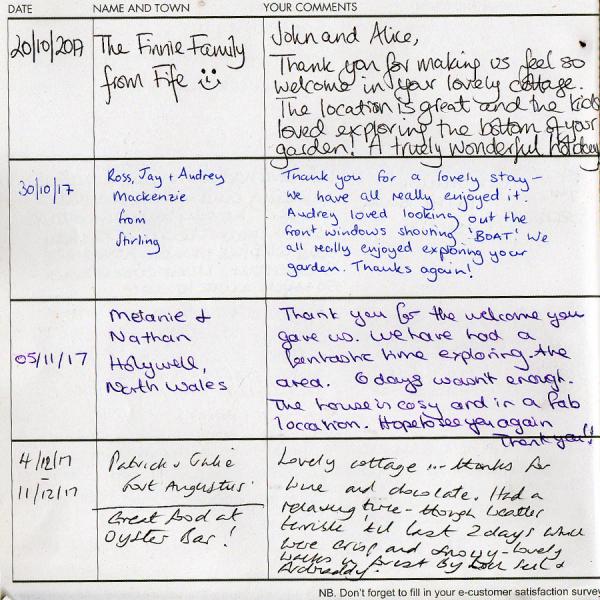 DATE NAME AND TOWN YOUR COMMENTS
20/10/2017 The Finnie Family
from Fife
John and Alice,
Thank you for making us feel so
welcome in your lovely cottage.
The location is great and the kids
loved exploring the bottom of your
garden! A truely wonderful holiday
30/10/17 Ross, Jay + Audrey
Mackenzie
from
Stirling
Thank you for a lovely stay -
we have all really enjoyed it.
Audrey loved looking out the
front windows shouting 'BOAT!' We
all really enjoyed exploring your
garden. Thanks again!
05/11/17 Melanie &
Nathan
Holywell,
North Wales
Thank you for the welcome you
gave us. We have had a
fantastic time exploring the
area. 6 days wasn't enough.
The house is cosy and in a fab
location. Hope to see you again
Thank you!!
4/12/17
-
11/12/17
Patrick & Julie
Fort Augustus.
Great food at
Oyster Bar!
Lovely cottage ... thanks for
wine and chocolate. Had a
relaxing time - though weather
terrible 'til last 2 days which
were crisp and snowy - lovely
walks in forest by &
Ardrabaddy.
NB. Don't forget to fill in your e-customer satisfaction survey